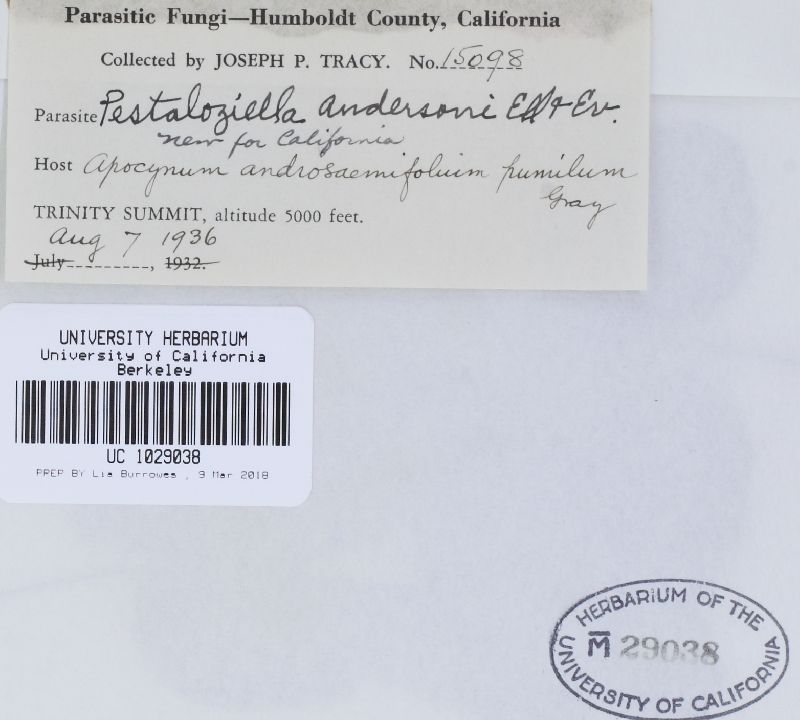 Parasitic Fungi—Humboldt County, California
Collected by JOSEPH P. TRACY. No. 15098
Parasite Pestaloziella andersoni Ell & Ev.
new for California
Host Apocynum androsaemifolium pumilum
Gray
TRINITY SUMMIT, altitude 5000 feet.
Aug 7 1936
July ---------, 1932.
UNIVERSITY HERBARIUM
University of California
Berkeley
UC 1029038
PREP BY Lia Burrowes , 9 Mar 2018
HERBARIUM OF THE
M̅ 29038
UNIVERSITY OF CALIFORNIA